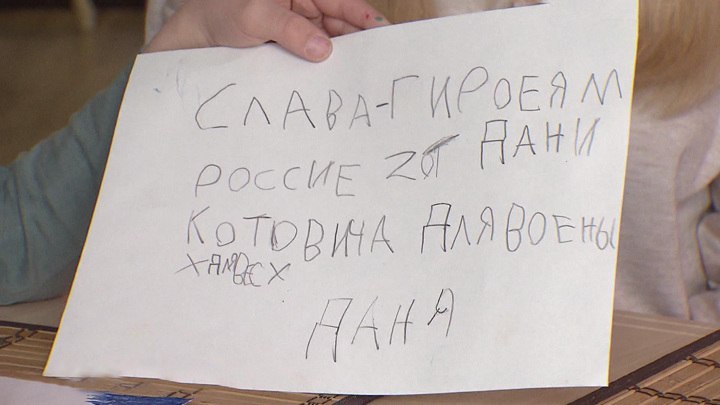 СЛАВА-ГИРОЕЯМ
РОССИЕ ZОТ ДАНИ
КОТОВИЧА ДЛЯ ВОЕНЫ
ХАМ ВСЕХ
ДАНЯ